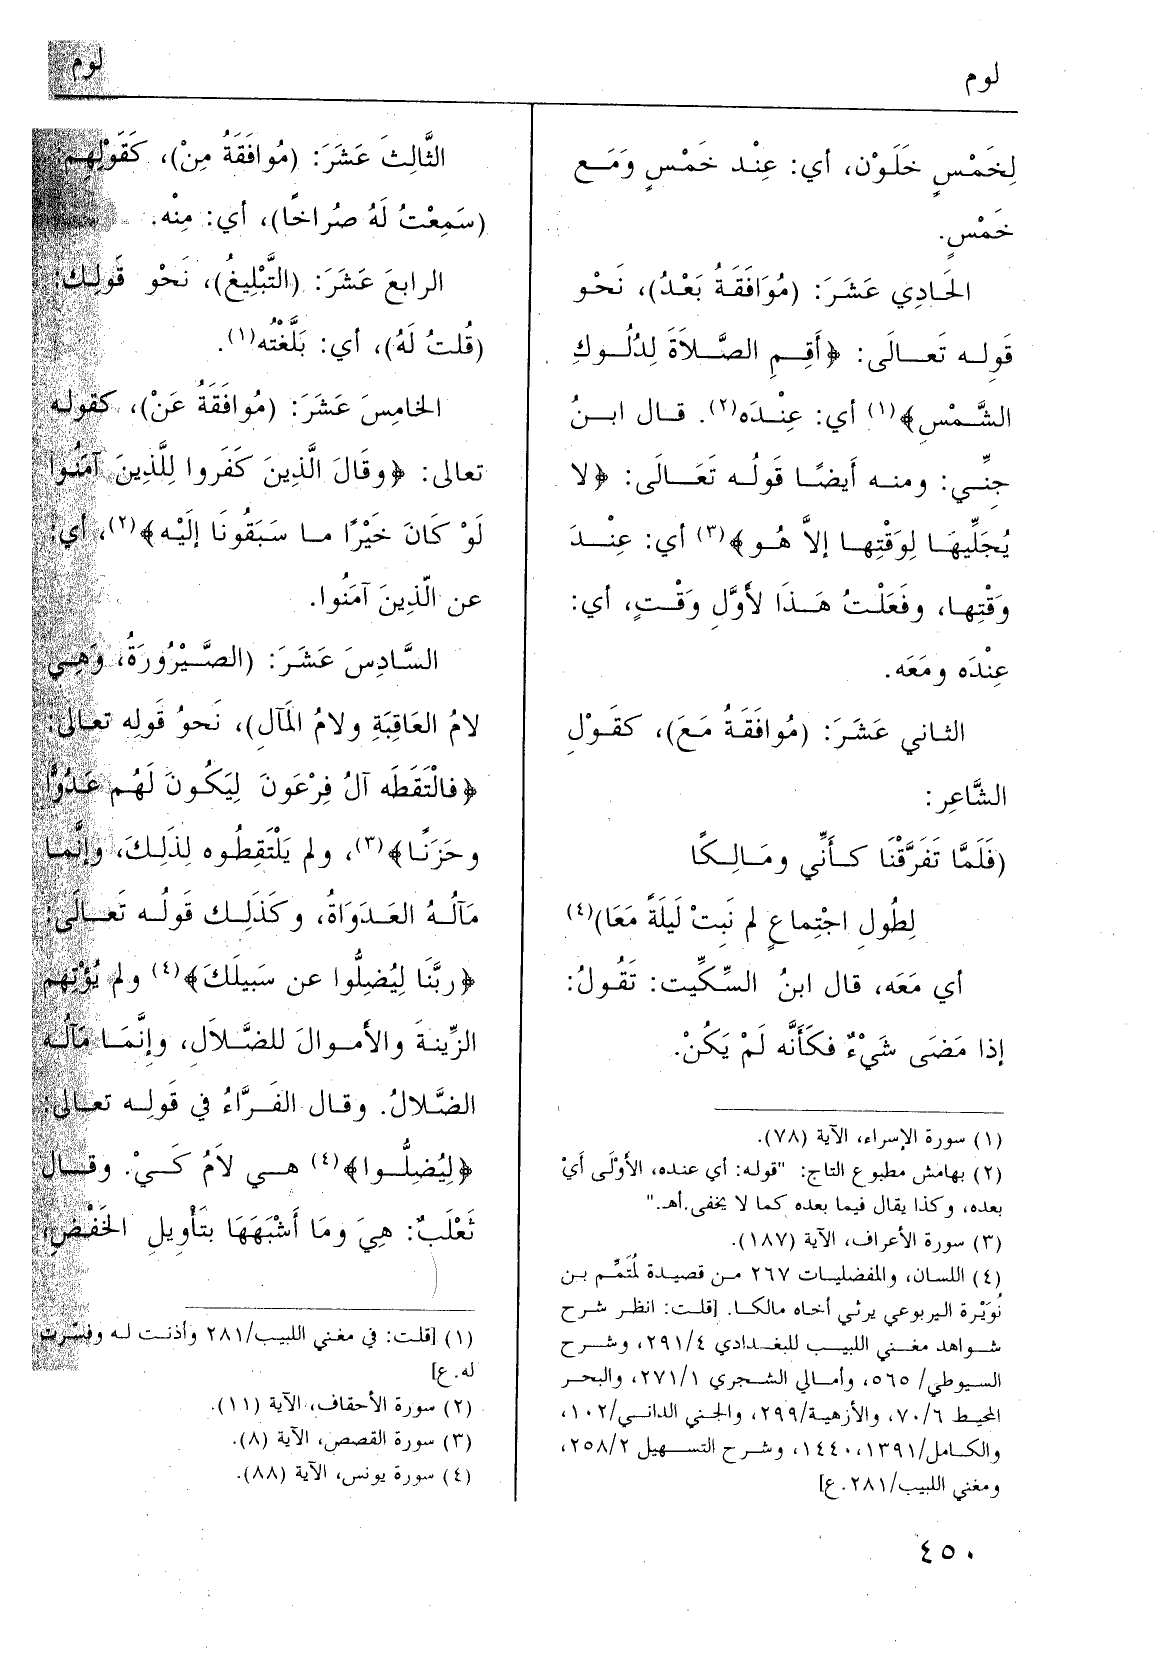 لوم
لوم
لِخَمْسٍ خَلَوْن، أي: عِنْد خَمْسٍ وَمَع
خَمْسٍ.
الحَادِي عَشَرَ: (مُوَافَقَةُ بَعْدُ)، نَحْو
قَولِه تَعالَى: ﴿أَقِمِ الصَّلَاةَ لِدُلُوكِ
الشَّمْسِ﴾(١) أي: عِنْدَه(٢). قال ابنُ
جِنِّي: ومنه أَيضًا قَولُه تَعَالَى: ﴿لا
يُجَلِّيهَا لِوَقْتِها إلاَّ هُو﴾(٣) أي: عِنْدَ
وَقْتِها، وفَعَلْتُ هَذَا لأَوَّلِ وَقْتٍ، أي:
عِنْدَه ومَعَه.
الثاني عَشَرَ: (مُوافَقَةُ مَعَ)، كقَوْلِ
الشَّاعِرِ:
(فَلَمَّا تَفَرَّقْنَا كأَنِّي ومَالِكًا
لِطُولِ اجْتِماعٍ لم نَبِتْ لَيلَةً مَعَا)(٤)
أي مَعَه، قال ابنُ السِّكِّيت: تَقُولُ:
إذا مَضَى شَيْءٌ فكَأَنَّه لَمْ يَكُنْ.
(١) سورة الإسراء، الآية (٧٨).
(٢) بهامش مطبوع التاج: "قوله: أي عنده، الأَوْلَى أَيْ
بعده، وكذا يقال فيما بعده كما لا يخفى.أهـ."
(٣) سورة الأعراف، الآية (١٨٧).
(٤) اللسان، والمفضليات ٢٦٧ من قصيدة لمُتَمِّم بن
نُوَيْرة اليربوعي يرثي أخاه مالكا. [قلت: انظر شرح
شواهد مغني اللبيب للبغدادي ٢٩١/٤، وشرح
السيوطي/٥٦٥، وأمالي الشجري ٢٧١/١، والبحر
المحيط ٧٠/٦، والأزهية/٢٩٩، والجنى الداني/١٠٢،
والكامل/١٣٩١،١٤٤٠، وشرح التسهيل ٢٥٨/٢،
ومغني اللبيب/٢٨١.ع]
الثَّالِثَ عَشَرَ: (مُوافَقَةُ مِنْ)، كَقَوْلِهِم:
(سَمِعْتُ لَهُ صُراخًا)، أي: مِنْه.
الرابعَ عَشَرَ: (التَّبْلِيغُ)، نَحْو قَولِك:
(قُلتُ لَهُ)، أي: بَلَّغْتُه(١).
الخامِسَ عَشَرَ: (مُوافَقَةُ عَنْ)، كقوله
تعالى: ﴿وقَالَ الَّذِينَ كَفَروا لِلَّذِينَ آمَنُوا
لَوْ كَانَ خَيْرًا ما سَبَقُونَا إلَيْه﴾(٢)، أي:
عن الّذِينَ آمَنُوا.
السَّادِسَ عَشَرَ: (الصَّيْرُورَةُ، وَهِي
لامُ العَاقِبَةِ ولامُ المَآلِ)، نَحوُ قَولِه تعالى:
﴿فالْتَقَطَه آلُ فِرْعَونَ لِيَكُونَ لَهُم عَدُوًّا
وحَزَنًا﴾(٣)، ولم يَلْتَقِطُوه لِذَلِكَ، وإنَّما
مَآلُهُ العَدَوَاةُ، وكَذَلِك قَولُه تَعالَى:
﴿ربَّنَا لِيُضِلُّوا عن سَبيلَكَ﴾(٤) ولم يُؤْتِهِم
الزِّينةَ والأَموالَ للضَّلالِ، وإنَّمَا مَآلُه
الضَّلالُ. وقال الفَرَّاءُ في قَولِه تعالى:
﴿لِيُضِلُّوا﴾(٤) هي لاَمُ كَيْ. وقال
ثَعْلَبٌ: هِيَ ومَا أَشْبَهَهَا بتَأْوِيلِ الخَفْضِ،
(١) [قلت: في مغني اللبيب/٢٨١ وأذنت له وفسّرت
له.ع]
(٢) سورة الأحقاف، الآية (١١).
(٣) سورة القصص، الآية (٨).
(٤) سورة يونس، الآية (٨٨).
٤٥٠